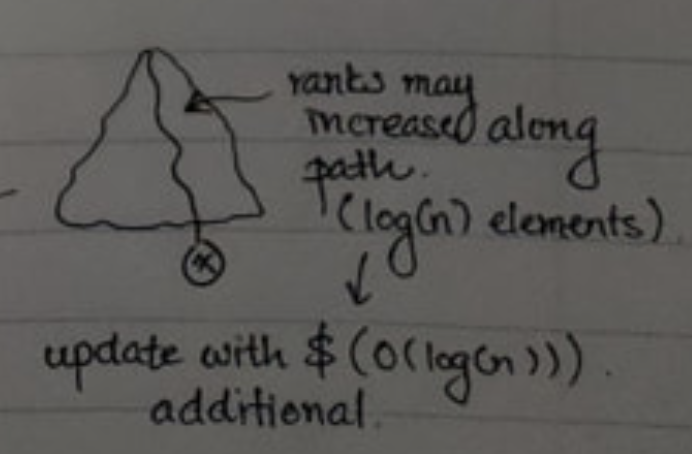 ranks may
increased along
path.
(log(n) elements)
x
↓
update with $ (O(log(n))).
additional.